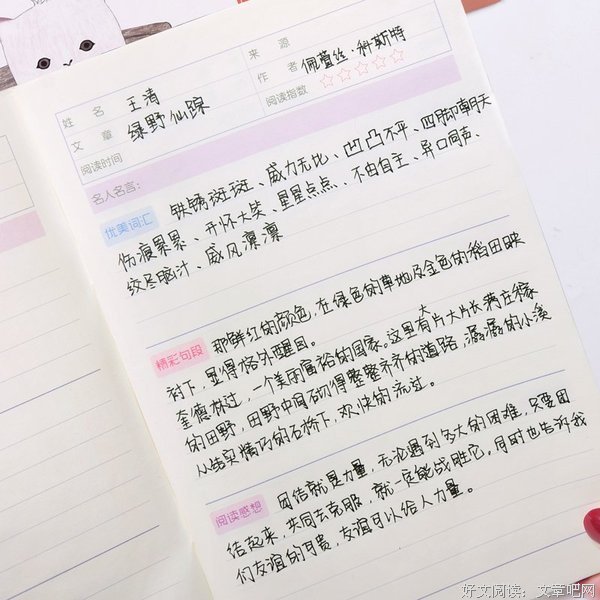 姓 名 王清
来 源
文 章 绿野仙踪
作 者 佩萱丝·科斯特
阅读时间
阅读指数 ☆☆☆☆☆
名人名言：
优美词汇 铁锈斑斑、威力无比、凹凸不平、四脚朝天
伤痕累累、开怀大笑、星星点点、不由自主、异口同声、
绞尽脑汁、威风凛凛
精彩句段 那鲜红的颜色，在绿色的草地及金色的稻田映
衬下，显得格外醒目。
奎德林过，一个美丽富裕的国家。这里有大片大片长满庄稼
的田野，田野中间石砌得整整齐齐的道路，潺潺的小溪
从结实精巧的石桥下，欢快的流过。
阅读感想 团结就是力量，无论遇到多大的困难，只要团
结起来，共同去克服，就一定能战胜它，同时也告诉我
们友谊的可贵，友谊可以给人力量。
好文阅读：文章吧网